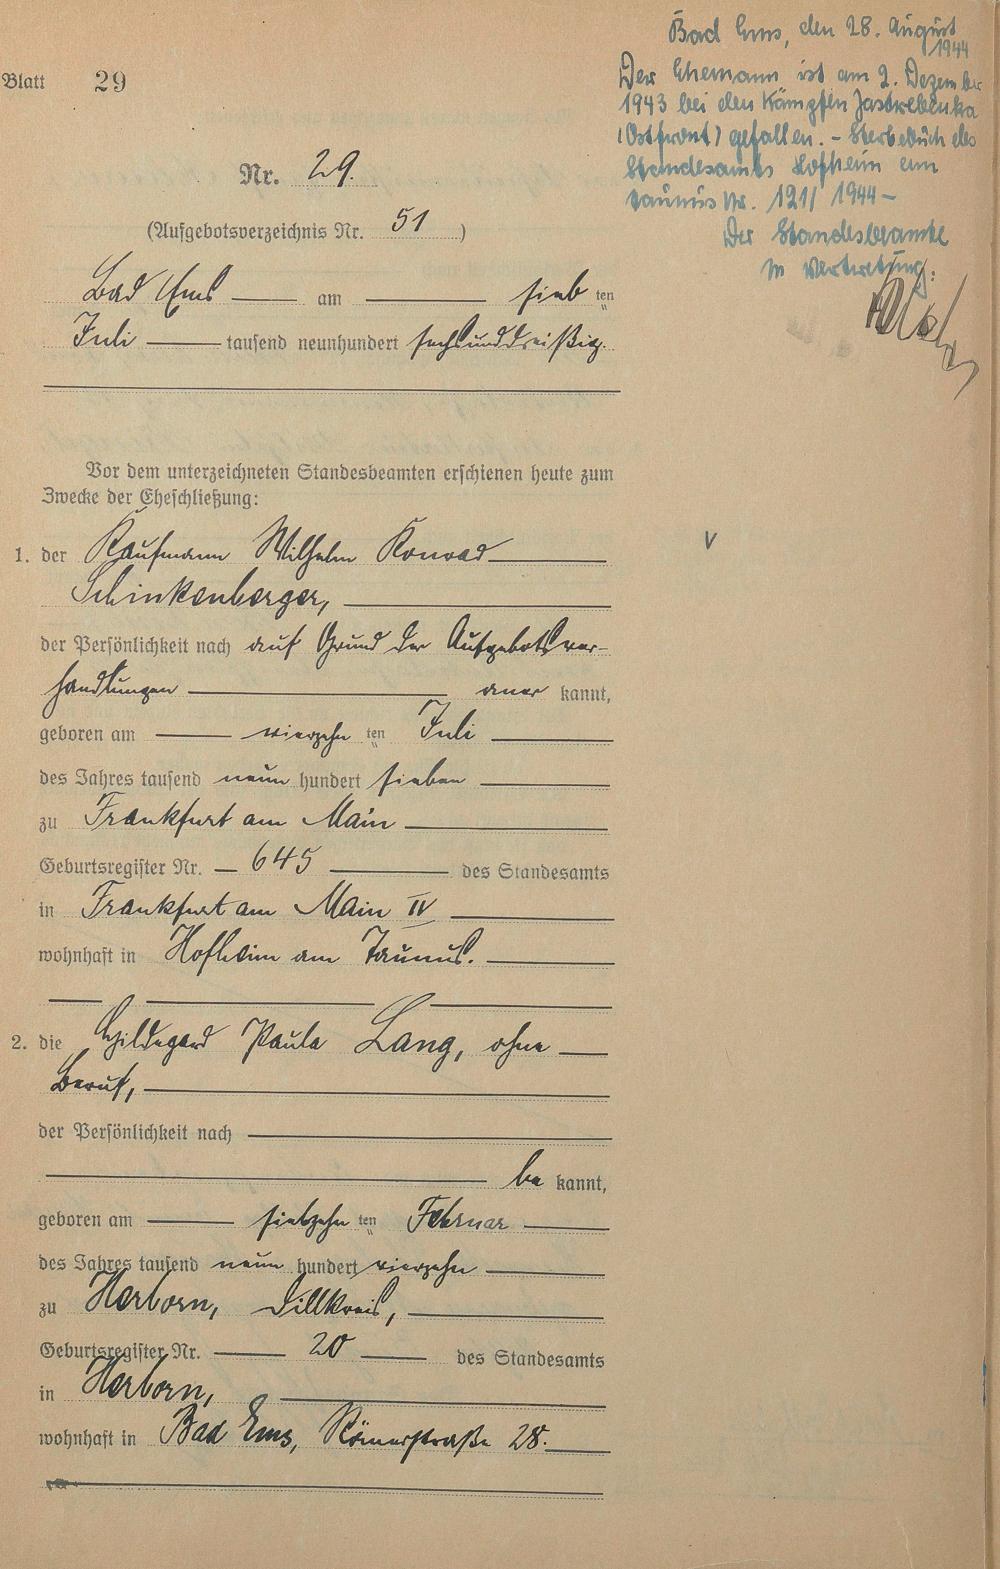 Blatt 29
Bad Ems, den 28. August
1944
Der Ehemann ist am 2. Dezember
1943 bei den Kämpfen Jastrebenka
(Ostfront) gefallen. - Sterbebuch des
Standesamts Hofheim am
Taunus Nr. 121/1944 -
Der Standesbeamte
In Vertretung:
Nr. 29.
(Aufgebotsverzeichnis Nr. 51)
Bad Ems am sieb ten
Juli tausend neunhundert sechsunddreißig.
Vor dem unterzeichneten Standesbeamten erschienen heute zum
Zwecke der Eheschließung:
1. der Kaufmann Wilhelm Konrad
Schinkenberger,
der Persönlichkeit nach auf Grund der Aufgebotsver-
handlungen aner kannt,
geboren am vierzehn ten Juli
des Jahres tausend neun hundert sieben
zu Frankfurt am Main
Geburtsregister Nr. 645 des Standesamts
in Frankfurt am Main IV
wohnhaft in Hofheim am Taunus.
2. die Hildegard Paula Lang, ohne
Beruf,
der Persönlichkeit nach
be kannt,
geboren am siebzehn ten Februar
des Jahres tausend neun hundert vierzehn
zu Herborn, Dillkreis,
Geburtsregister Nr. 20 des Standesamts
in Herborn,
wohnhaft in Bad Ems, Römerstraße 28.